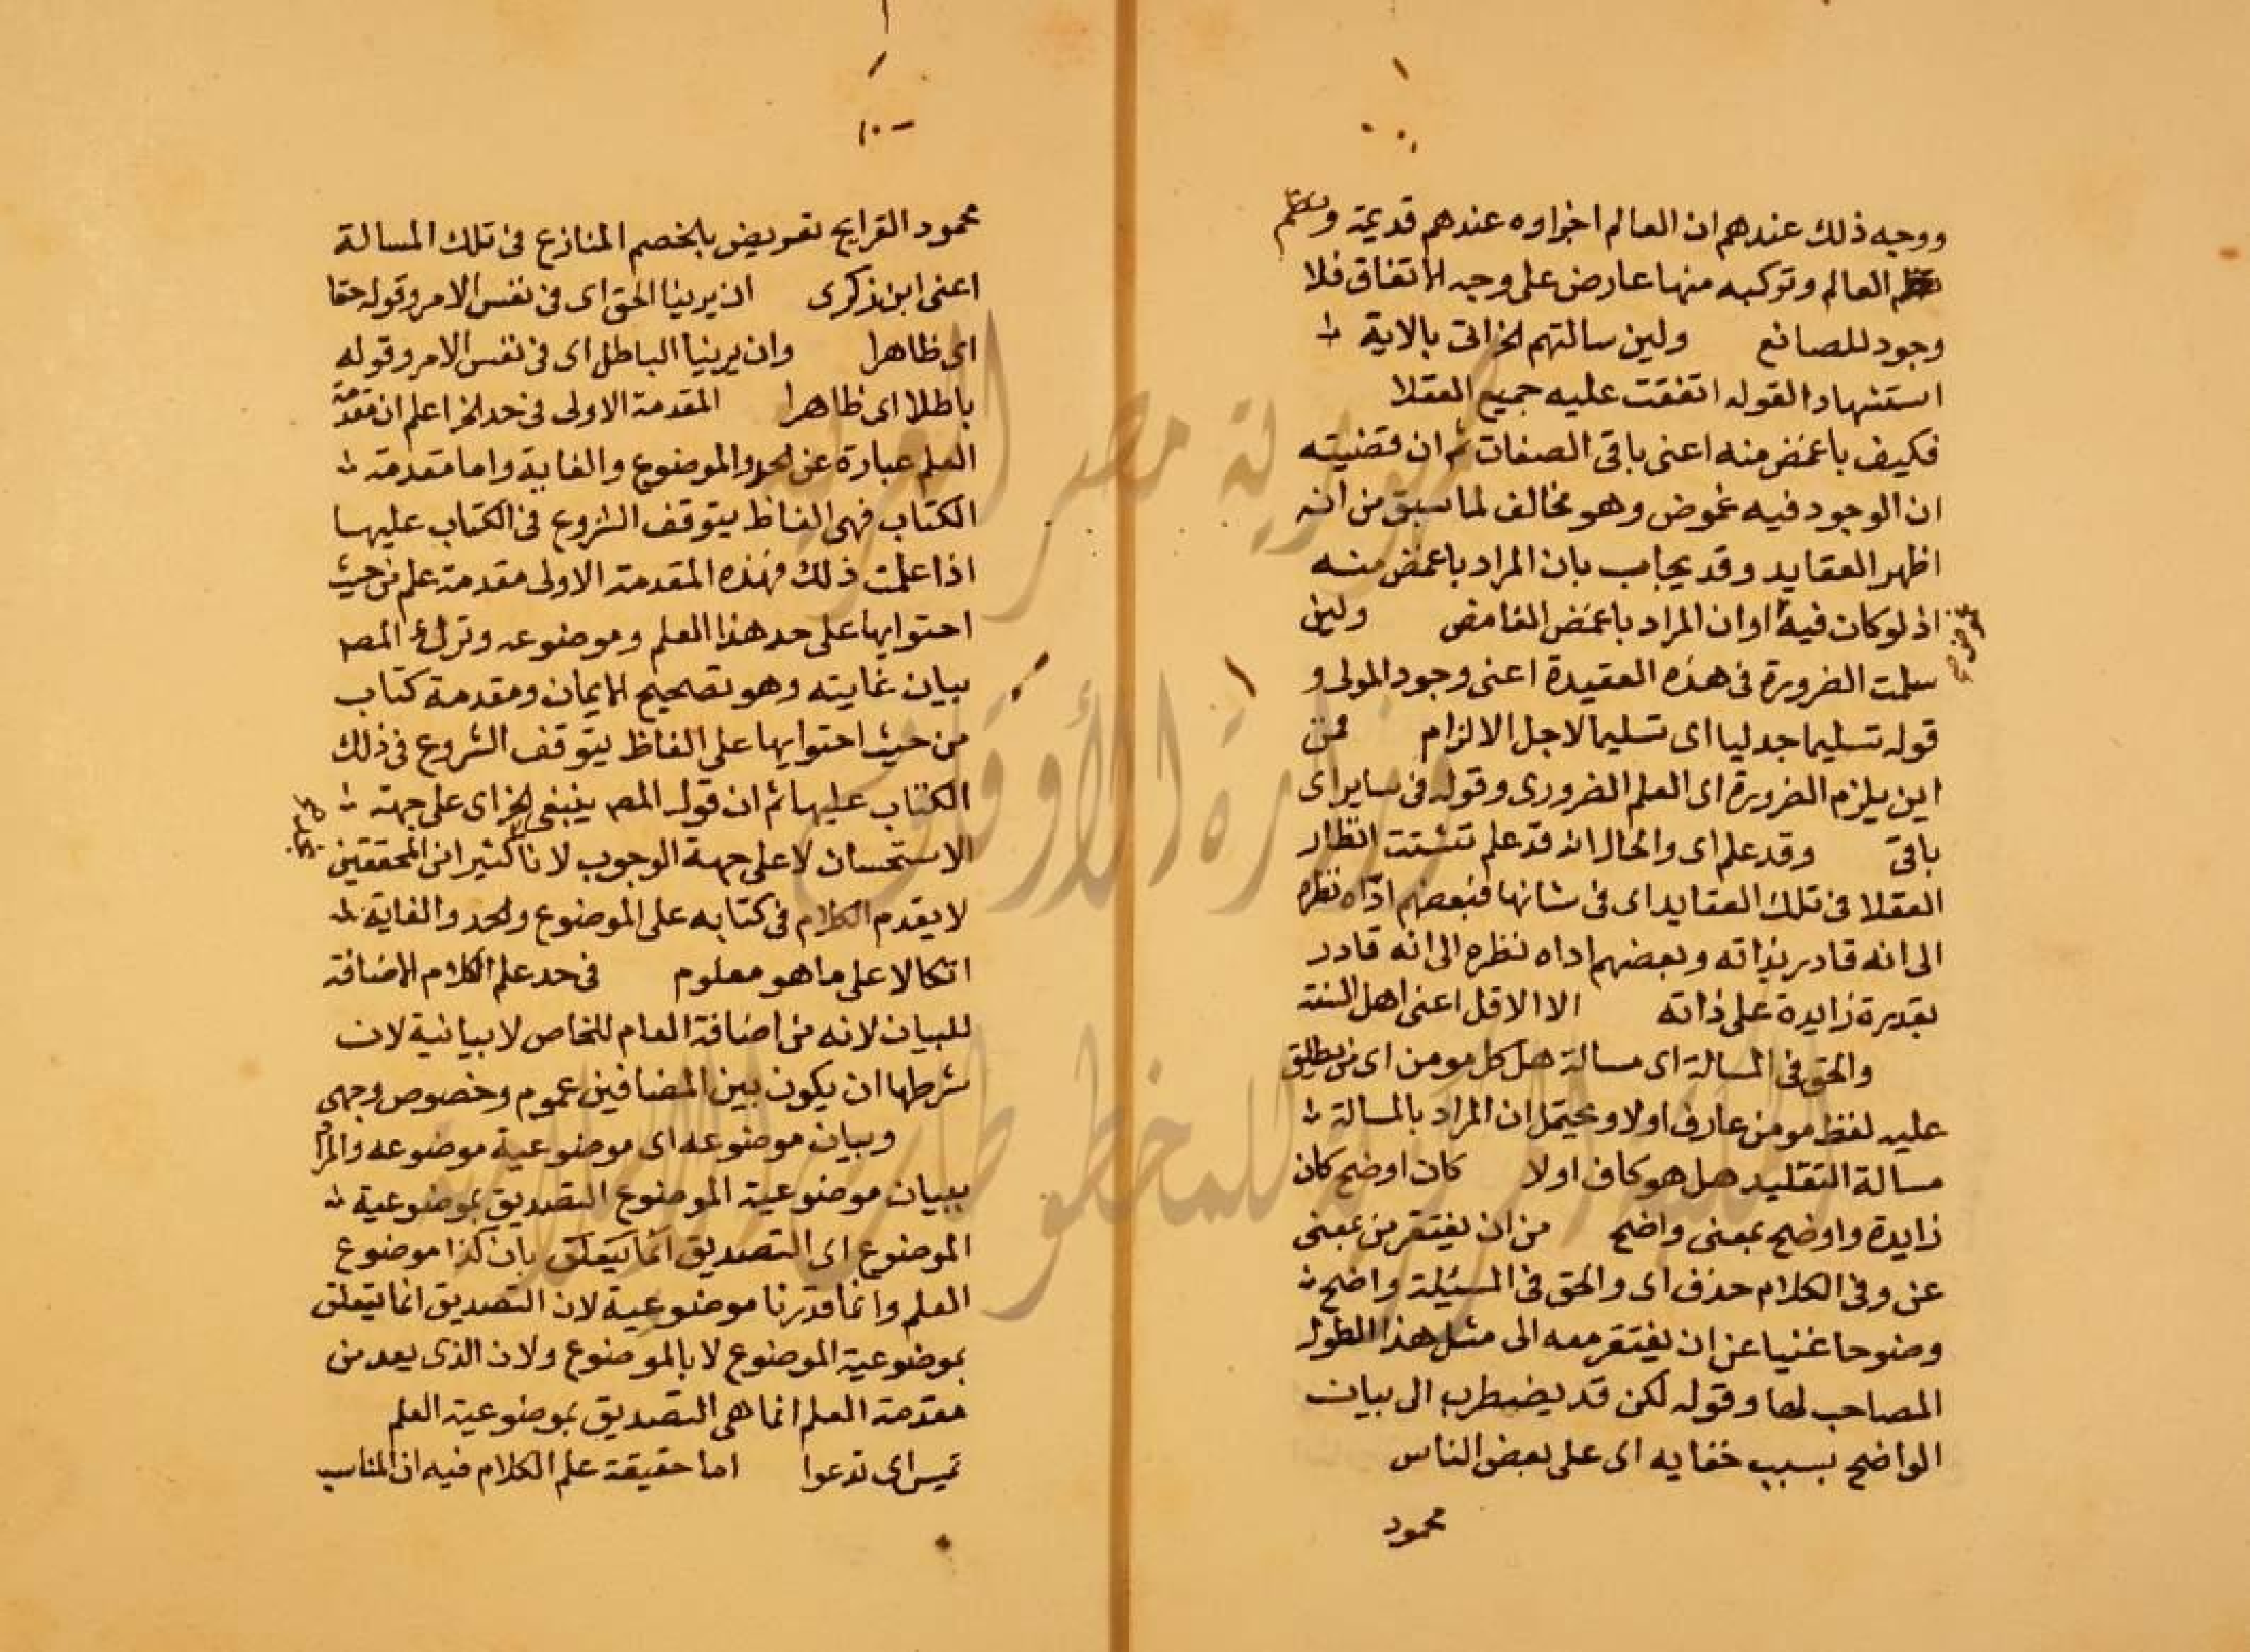 ووجه ذلك عندهم ان العالم اجزاوه عندهم قديمة ونظم
العالم وتركبه منها عارض على وجه الاتفاق فلا
وجود للصانع ولين سالتهم الخ اتى بالاية
استشهادا لقوله اتفقت عليه جميع العقلا
فكيف باغمض منه اعنى باقى الصفات ثم ان قضيته
ان الوجود فيه غموض وهو مخالف لما سبق من انه
اظهر العقايد وقد يجاب بان المراد باغمض منه
اذ لو كان فيه او ان المراد باغمض الغامض ولين
غموض صح
سلمت الضرورة فى هذه العقيدة اعنى وجود المولى و
قوله تسليما جدليا اى تسليما لاجل الالزام فمن
اين يلزم الضرورة اى العلم الضرورى وقوله فى ساير اى
باقى وقد علم اى والحال انه قد علم تشتت انظار
العقلا فى تلك العقايد اى فى شانها فبعضهم اداه نظره
الى انه قادر بذاته وبعضهم اداه نظره الى انه قادر
بقدرة زايدة على ذاته الا الاقل اعنى اهل السنة
والحق فى المسالة اى مسالة هل كل مومن اى من يطلق
عليه لفظ مومن عارف اولا ويحتمل ان المراد بالمسالة
مسالة التقليد هل هو كاف اولا كان اوضح كان
زايدة واوضح بمعنى واضح من ان يفتقر من بمعنى
عن وفى الكلام حذف اى والحق فى المسئلة واضح
وضوحا غنيا عن ان يفتقر معه الى مثل هذا الطول
المصاحب لها وقوله لكن قد يضطرب الى بيان
الواضح بسبب خفايه اى على بعض الناس
محمود
محمود القرايح تعريض بالخصم المنازع فى تلك المسالة
اعنى ابن ذكرى ان يرينا الحق اى فى نفس الامر وقوله حقا
اى ظاهرا وان يرينا الباطل اى فى نفس الامر وقوله
باطلا اى ظاهرا المقدمة الاولى فى حد الخ اعلم ان مقدمة
العلم عبارة عن الحد والموضوع والغاية واما مقدمة
الكتاب فهى الفاظ يتوقف الشروع فى الكتاب عليها
اذا علمت ذلك فهذه المقدمة الاولى مقدمة علم من حيث
احتوايها على حد هذا العلم وموضوعه وترك المص
بيان غايته وهو تصحيح الايمان ومقدمة كتاب
من حيث احتوايها على الفاظ يتوقف الشروع فى ذلك
الكتاب عليها ثم ان قول المص ينبغى الخ اى على جهة
الاستحسان لا على جهة الوجوب لانا كثيرا من المحققين
لا يقدم الكلام فى كتابه على الموضوع والحد والغاية
اتكالا على ما هو معلوم فى حد علم الكلام الاضافة
للبيان لانه من اضافة العام للخاص لا بيانية لان
شرطها ان يكون بين المضافين عموم وخصوص وجهى
وبيان موضوعه اى موضوعية موضوعه والمراد
ببيان موضوعية الموضوع التصديق بموضوعية
الموضوع اى التصديق انما يتعلق بان كذا موضوع
العلم وانما قدرنا موضوعية لان التصديق انما يتعلق
بموضوعية الموضوع لا بالموضوع ولان الذى يعد من
مقدمة العلم انما هى التصديق بموضوعية العلم
تمس اى تدعوا اما حقيقة علم الكلام فيه ان المناسب
جمهورية مصر العربية
وزارة الأوقاف